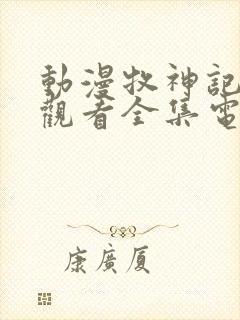 動漫牧神記
觀看全集電
康廣厦